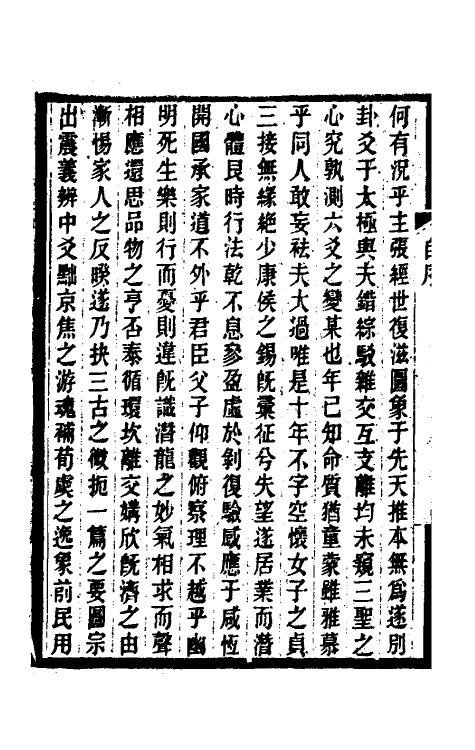 何有況乎主張經世復滋圖象于先天推本無爲遂別
卦爻于太極輿夫錯綜駁雜交互支離均未窺三聖之
心究孰測六爻之變某也年已知命質猶童蒙雖雅慕
乎同人敢妄祛夫大過唯是十年不字空懷女子之貞
三接無緣絶少康侯之錫旣彙征兮失望遂居業而潛
心體艮時行法乾不息參盈虛於剝復驗感應于咸恆
開國承家道不外乎君臣父子仰觀俯察理不越乎幽
明死生樂則行而憂則違旣識潛龍之妙氣相求而聲
相應還思品物之亨否泰循環坎離交媾欣旣濟之由
漸惕家人之反睽遂乃抉三古之微扼一篇之要圖宗
出震義辨中爻黜京焦之游魂補荀虞之逸象前民用
自序